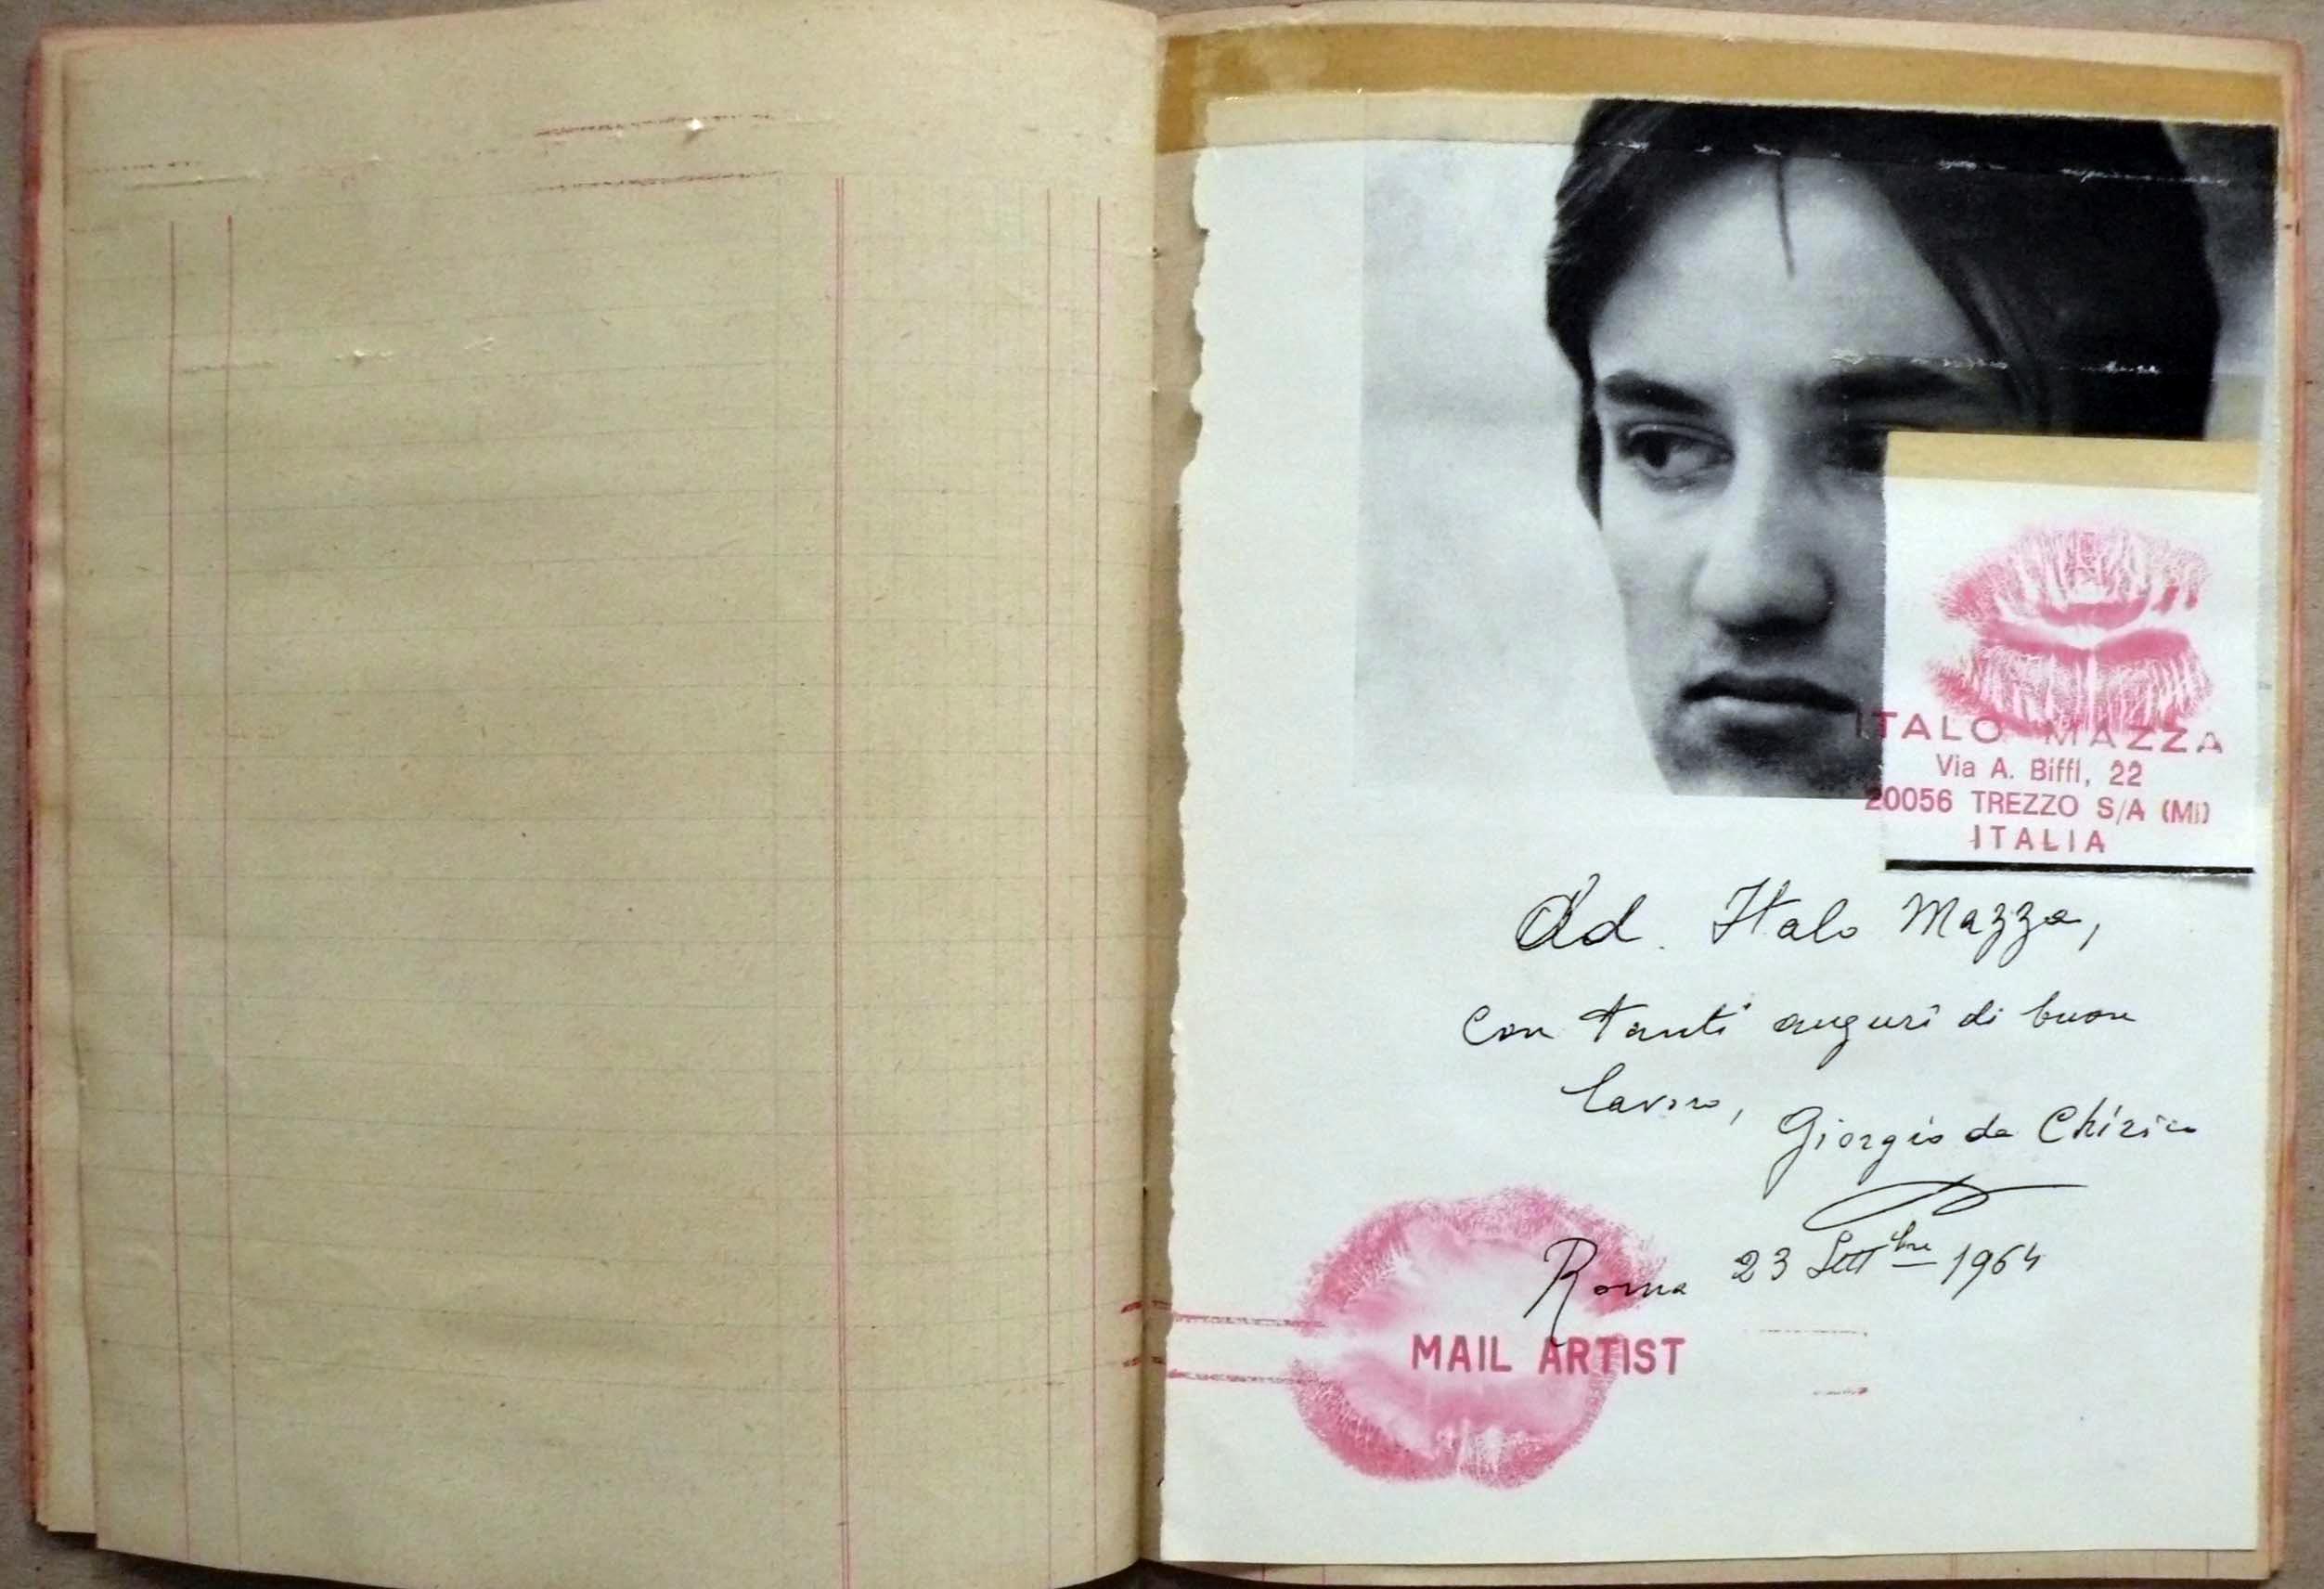 ITALO MAZZA
Via A. Biffi, 22
20056 TREZZO S/A (MI)
ITALIA
Ad. Italo Mazza,
con tanti auguri di buon
lavoro,
Giorgio de Chirico
Roma 23 Sett bre 1964
MAIL ARTIST